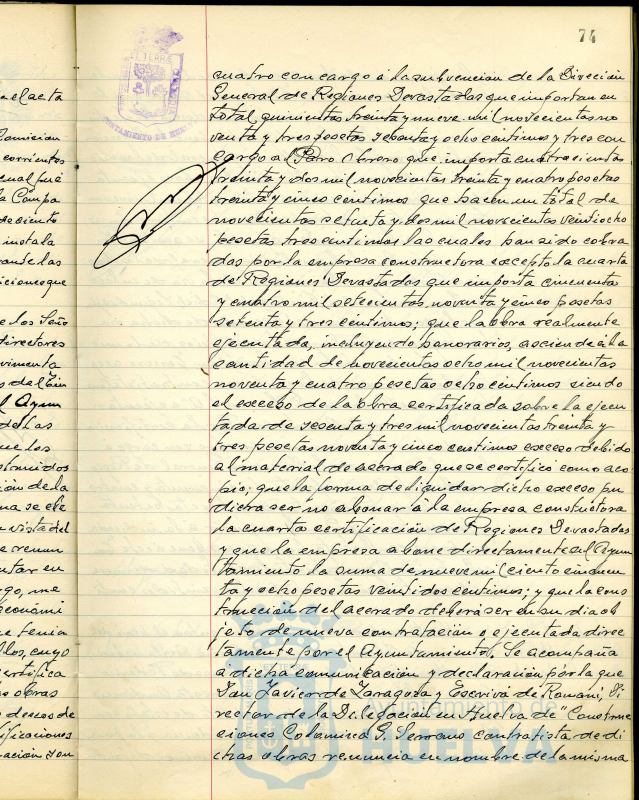 74
cuatro con cargo á la subvencion de la Direccion
General de Regiones Devastadas que importan en
total quinientas treinta y nueve mil novecientas no
venta y tres pesetas setenta y ocho centimos y tres con
cargo al Paro Obrero que importa cuatrocientas
treinta y dos mil novecientas treinta y cuatro pesetas
treinta y cinco centimos que hacen un total de
novecientas setenta y dos mil novecientas veintiocho
pesetas trece centimos las cuales han sido cobra
das por la empresa constructora excepto la cuarta
de Regiones Devastadas que importa cincuenta
y cuatro mil setecientas noventa y cinco pesetas
setenta y tres céntimos; que la obra realmente
ejecutada, incluyendo honorarios, asciende á la
cantidad de novecientas ocho mil novecientas
noventa y cuatro pesetas ocho centimos siendo
el exceso de la obra certificada sobre la ejecu
tada de sesenta y tres mil novecientas treinta y
tres pesetas noventa y cinco centimos exceso debido
al material de acerado que se certificó como aco
pio; que la forma de liquidar dicho exceso pu
diera ser no abonar á la empresa constructora
la cuarta certificación de Regiones Devastadas
y que la empresa abone directamente al Ayun
tamiento la suma de nueve mil ciento cincuen
ta y ocho pesetas veintidos céntimos; y que la cons
trucción del acerado deberá ser en su dia ob
jeto de nueva contratación o ejecutada direc
tamente por el Ayuntamiento. Se acompaña
a dicha comunicación y declaración por la que
Don Javier de Zaragoza y Escrivá de Romaní, Di
rector de la Delegación en Huelva de "Construc
ciones Colomina G. Serrano contratista de di
chas obras renuncia en nombre de la misma
ael acta
corrientes
cual fué
la Campa
de ciento
instala
rante las
iciones que
e los Seño
directores
vimenta
l Ayun
de las
ue los
ión de la
ma se ele
n vista del
ntar en
go, me
económi
e tenia
llos, cuyo
ertifica
s obras
s deseos de
tificaciones
ación son
Ayuntamiento de
HUELVA